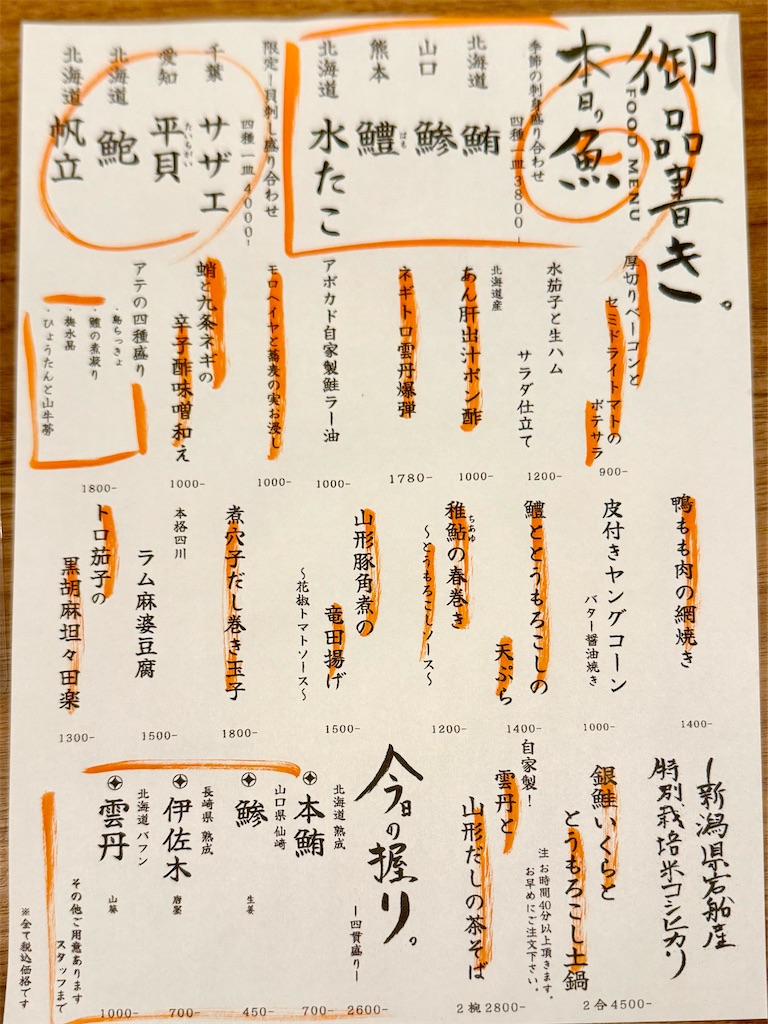 御品書き。
FOOD MENU
本日の魚
季節の刺身盛り合わせ
四種一皿3800-
北海道 鮪
山口 鰺
熊本 鱧
はも
北海道 水たこ
限定!貝刺し盛り合わせ
四種一皿4000-
千葉 サザエ
愛知 平貝
たいらがい
北海道 鮑
北海道 帆立
厚切りベーコンと
セミドライトマトの
ポテサラ
900-
水茄子と生ハム
サラダ仕立て
1200-
北海道産
あん肝出汁ポン酢
1000-
ネギトロ雲丹爆弾
1780-
アボカド自家製鮭ラー油
1000-
モロヘイヤと蕎麦の実お浸し
1000-
蛸と九条ネギの
辛子酢味噌和え
1000-
アテの四種盛り
・島らっきょ
・鱧の煮凝り
・梅水晶
・ひょうたんと山牛蒡
1800-
鴨もも肉の網焼き
1400-
皮付きヤングコーン
バター醤油焼き
1000-
鱧ととうもろこしの
天ぷら
1400-
稚鮎の春巻き
ちあゆ
〜とうもろこしソース〜
1200-
山形豚角煮の
竜田揚げ
〜花椒トマトソース〜
1500-
煮穴子だし巻き玉子
1800-
本格四川
ラム麻婆豆腐
1500-
トロ茄子の
黒胡麻坦々田楽
1300-
ー新潟県岩船産
特別栽培米コシヒカリ
銀鮭いくらと
とうもろこし土鍋
注 お時間40分以上頂きます。
お早めにご注文下さい。
2合4500-
自家製!
雲丹と
山形だしの茶そば
2椀2800-
今日の握り。
ー四貫盛りー
2600-
北海道 熟成
本鮪
700-
山口県 仙崎
鰺
生姜
450-
長崎県 熟成
伊佐木
700-
北海道 バフン
雲丹
山葵
1000-
その他ご用意あります
スタッフまで
※全て税込価格です